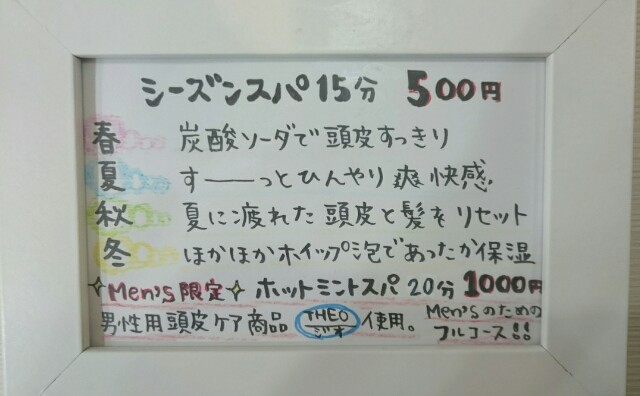 シーズンスパ15分 500円
春 炭酸ソーダで頭皮すっきり
夏 すーっとひんやり爽快感
秋 夏に疲れた頭皮と髪をリセット
冬 ほかほかホイップ泡であったか保湿
Men's限定 ホットミントスパ 20分 1000円
男性用頭皮ケア商品 THEO ジオ 使用。
Men'sのための
フルコース!!